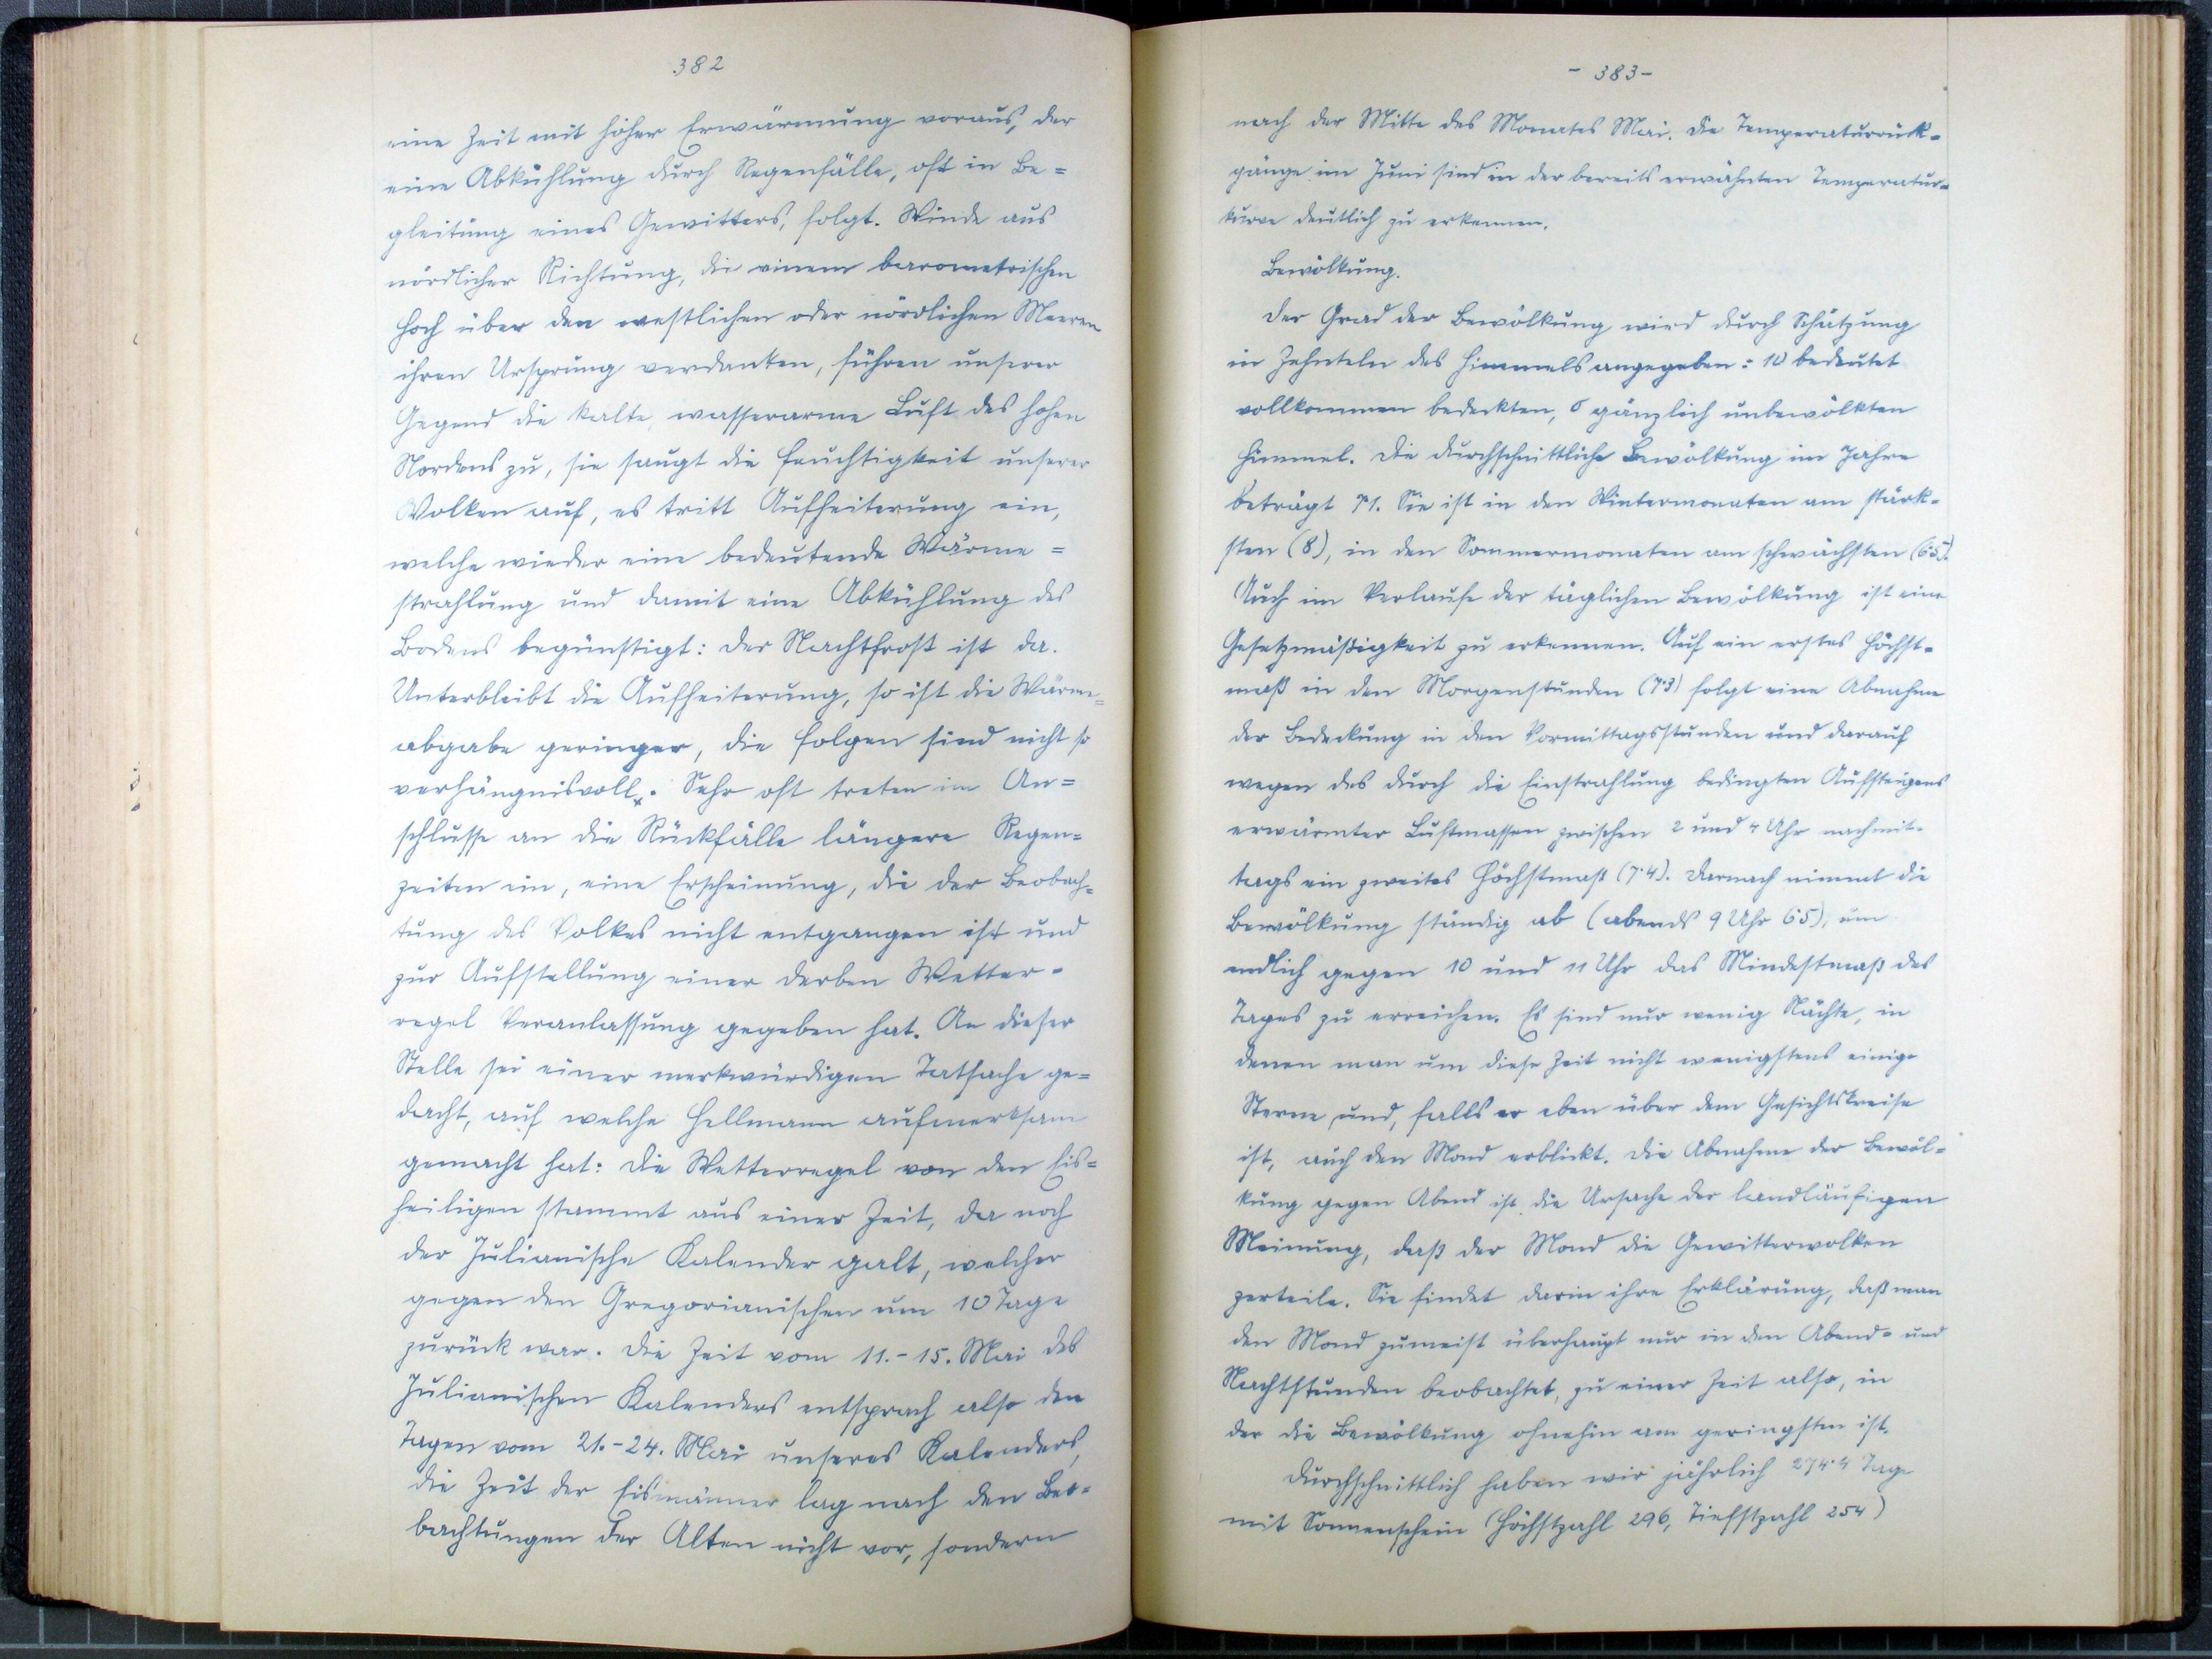 382
eine Zeit mit hoher Erwärmung voraus, der
eine Abkühlung durch Regenfälle, oft in Be=
gleitung eines Gewitters, folgt. Winde aus
nördlicher Richtung, die einem barometrischen
Hoch über den westlichen oder nördlichen Meeren
ihren Ursprung verdanken, führen unserer
Gegend die kalte, wasserarme Luft des hohen
Nordens zu, sie saugt die Feuchtigkeit unserer
Wolken auf, es tritt Aufheiterung ein,
welche wieder eine bedeutende Wärme=
strahlung und damit eine Abkühlung des
Bodens begünstigt: der Nachtfrost ist da.
Unterbleibt die Aufheiterung, so ist die Wärme=
abgabe geringer, die Folgen sind nicht so
verhängnisvoll. Sehr oft treten im An=
schlusse an die Rückfälle längere Regen=
zeiten ein, eine Erscheinung, die der Beobach=
tung des Volkes nicht entgangen ist und
zur Aufstellung einer derben Wetter=
regel Veranlassung gegeben hat. An dieser
Stelle sei einer merkwürdigen Tatsache ge=
dacht, auf welche Hellmann aufmerksam
gemacht hat: die Wetterregel von den Eis=
heiligen stammt aus einer Zeit, da noch
der Julianische Kalender galt, welcher
gegen den Gregorianischen um 10 Tage
zurück war. Die Zeit vom 11.-15. Mai des
Julianischen Kalenders entsprach also den
Tagen vom 21.-24. Mai unseres Kalenders,
die Zeit der Eismänner lag nach den Beo=
bachtungen der Alten nicht vor, sondern
- 383 -
nach der Mitte des Monates Mai. Die Temperaturrück=
gänge im Juni sind in der bereits erwähnten Temperatur=
kurve deutlich zu erkennen.
Bewölkung.
Der Grad der Bewölkung wird durch Schätzung
in Zehnteln des Himmels angegeben: 10 bedeutet
vollkommen bedeckten, 0 gänzlich unbewölkten
Himmel. Die durchschnittliche Bewölkung im Jahre
beträgt 7·1. Sie ist in den Wintermonaten am stärk=
sten (8), in den Sommermonaten am schwächsten (6·5).
Auch im Verlaufe der täglichen Bewölkung ist eine
Gesetzmäßigkeit zu erkennen. Auf ein erstes Höchst=
maß in den Morgenstunden (7·3) folgt eine Abnahme
der Bedeckung in den Vormittagsstunden und darauf
wegen des durch die Einstrahlung bedingten Aufsteigens
erwärmter Luftmassen zwischen 2 und 4 Uhr nachmit=
tags ein zweites Höchstmaß (7·4). Darnach nimmt die
Bewölkung ständig ab (abends 9 Uhr 6·5), um
endlich gegen 10 und 11 Uhr das Mindestmaß des
Tages zu erreichen. Es sind nur wenig Nächte, in
denen man um diese Zeit nicht wenigstens einige
Sterne und, falls er eben über dem Gesichtskreise
ist, auch den Mond erblickt. Die Abnahme der Bewöl=
kung gegen Abend ist die Ursache der landläufigen
Meinung, daß der Mond die Gewitterwolken
zerteile. Sie findet darin ihre Erklärung, daß man
den Mond zumeist überhaupt nur in den Abend= und
Nachtstunden beobachtet, zu einer Zeit also, in
der die Bewölkung ohnehin am geringsten ist.
Durchschnittlich haben wir jährlich 274·4 Tage
mit Sonnenschein (Höchstzahl 296, Tiefstzahl 254)